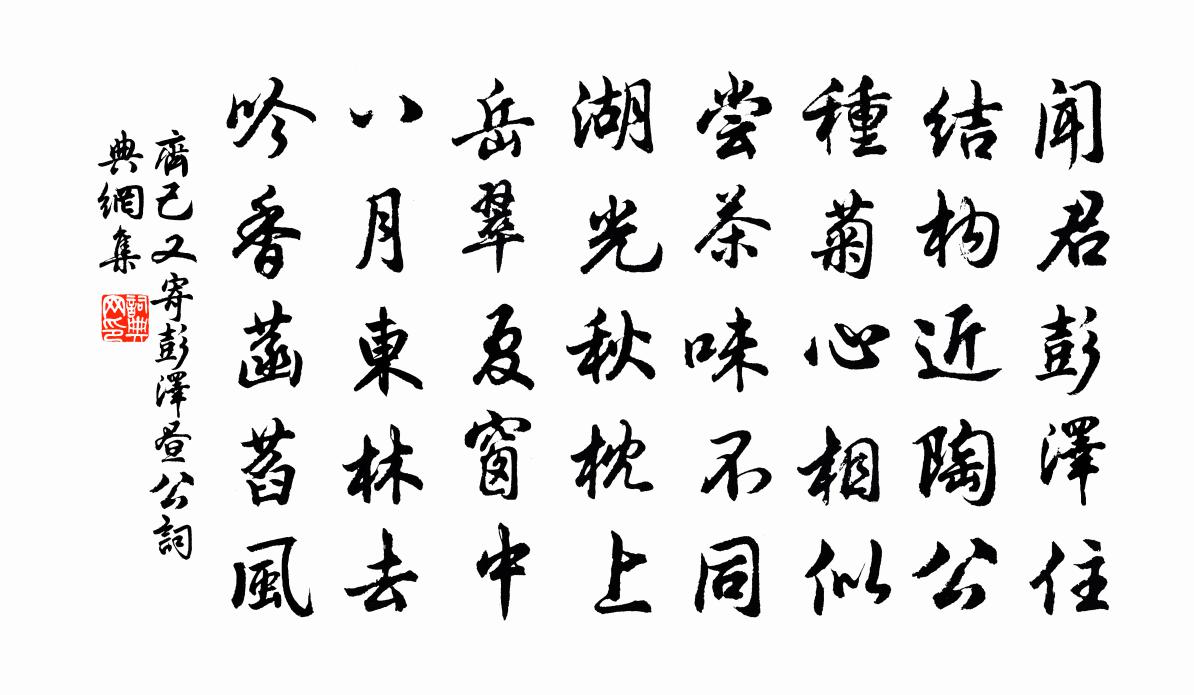 闻君彭澤住
结构近陶公
種菊心相似
尝茶味不同
湖光秋枕上
岳翠夏窗中
八月東林去
吟香菡萏風
齊己又寄彭澤晝公詞
典網集
詞典
网印